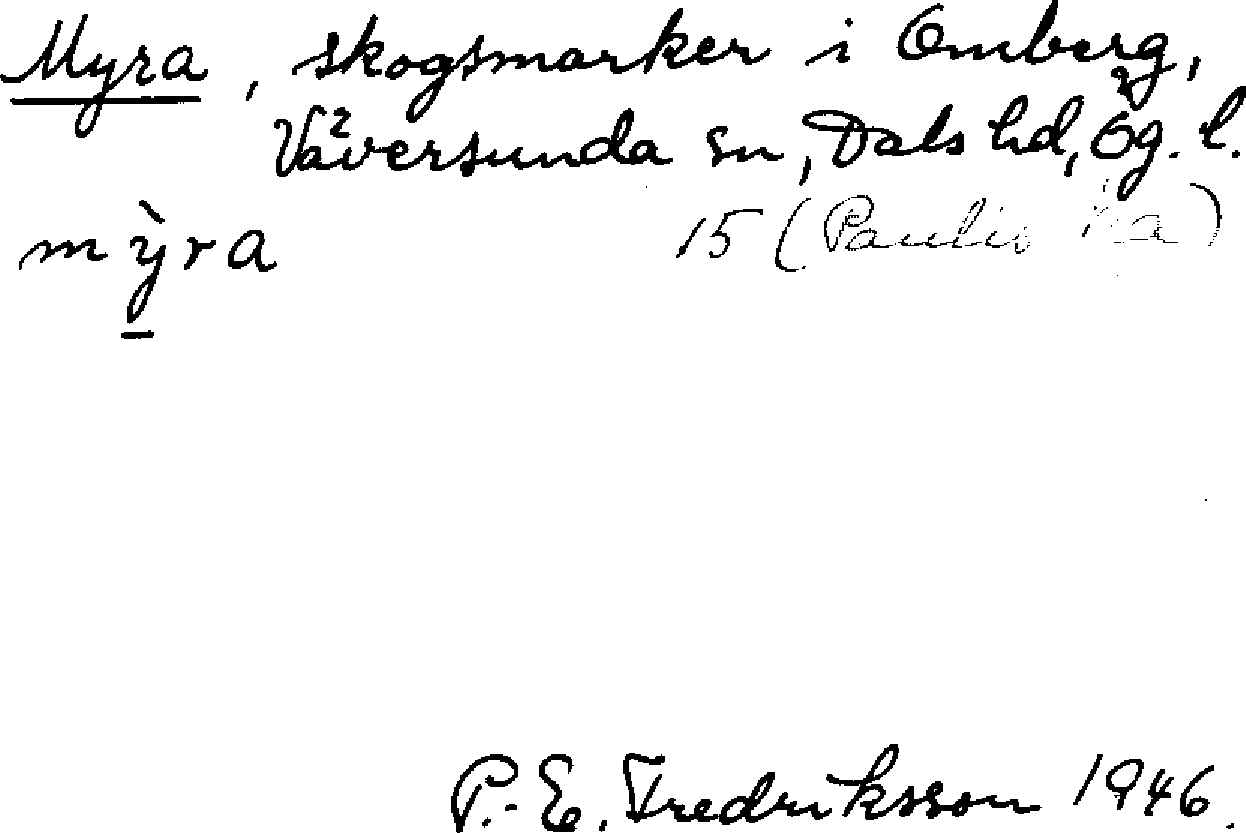 Myra, skogsmarker i Omberg,
Väversunda sn, Dals hd, Ög. l.
mỳra 15 (
P.-E. Fredriksson 1946.